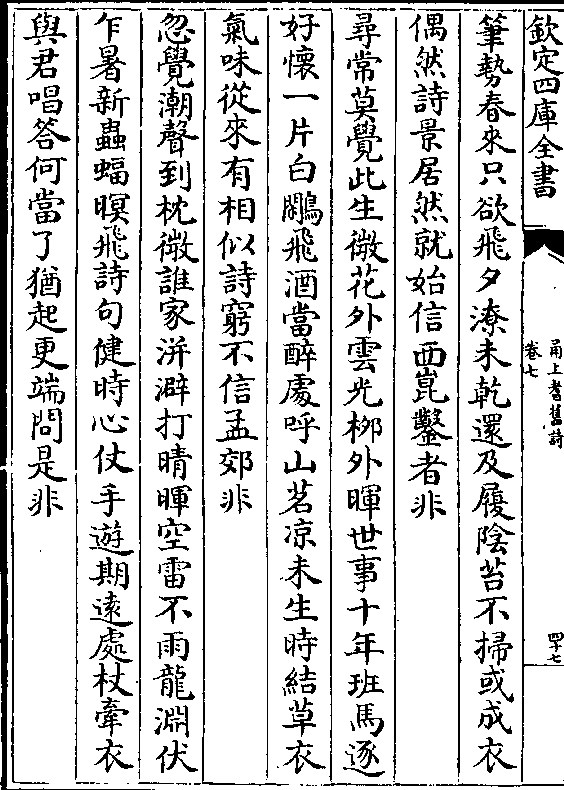 欽定四庫全書
甬上耆舊詩
卷七
四十七
筆勢春來只欲飛夕潦未乾還及履陰苔不掃或成衣
偶然詩景居然就始信西崑鑿者非
尋常莫覺此生微花外雲光柳外暉世事十年班馬逐
好懷一片白鷴飛酒當醉處呼山茗凉未生時結草衣
氣味從來有相似詩窮不信孟郊非
忽覺潮聲到枕微誰家洴澼打晴暉空雷不雨龍淵伏
乍暑新蟲蝠暝飛詩句健時心仗手遊期遠處杖牽衣
與君唱答何當了猶起更端問是非